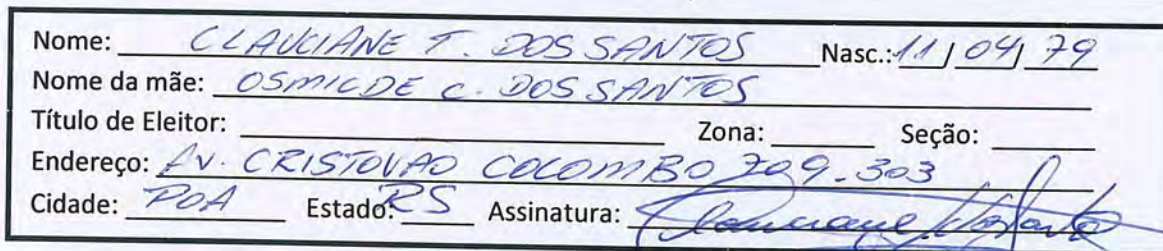 Nome: CLAUCIANE T. DOS SANTOS Nasc.: 11/04/79
Nome da mãe: OSMILDE C. DOS SANTOS
Título de Eleitor: Zona: Seção:
Endereço: AV. CRISTOVAO COLOMBO 709-303
Cidade: POA Estado: RS Assinatura: